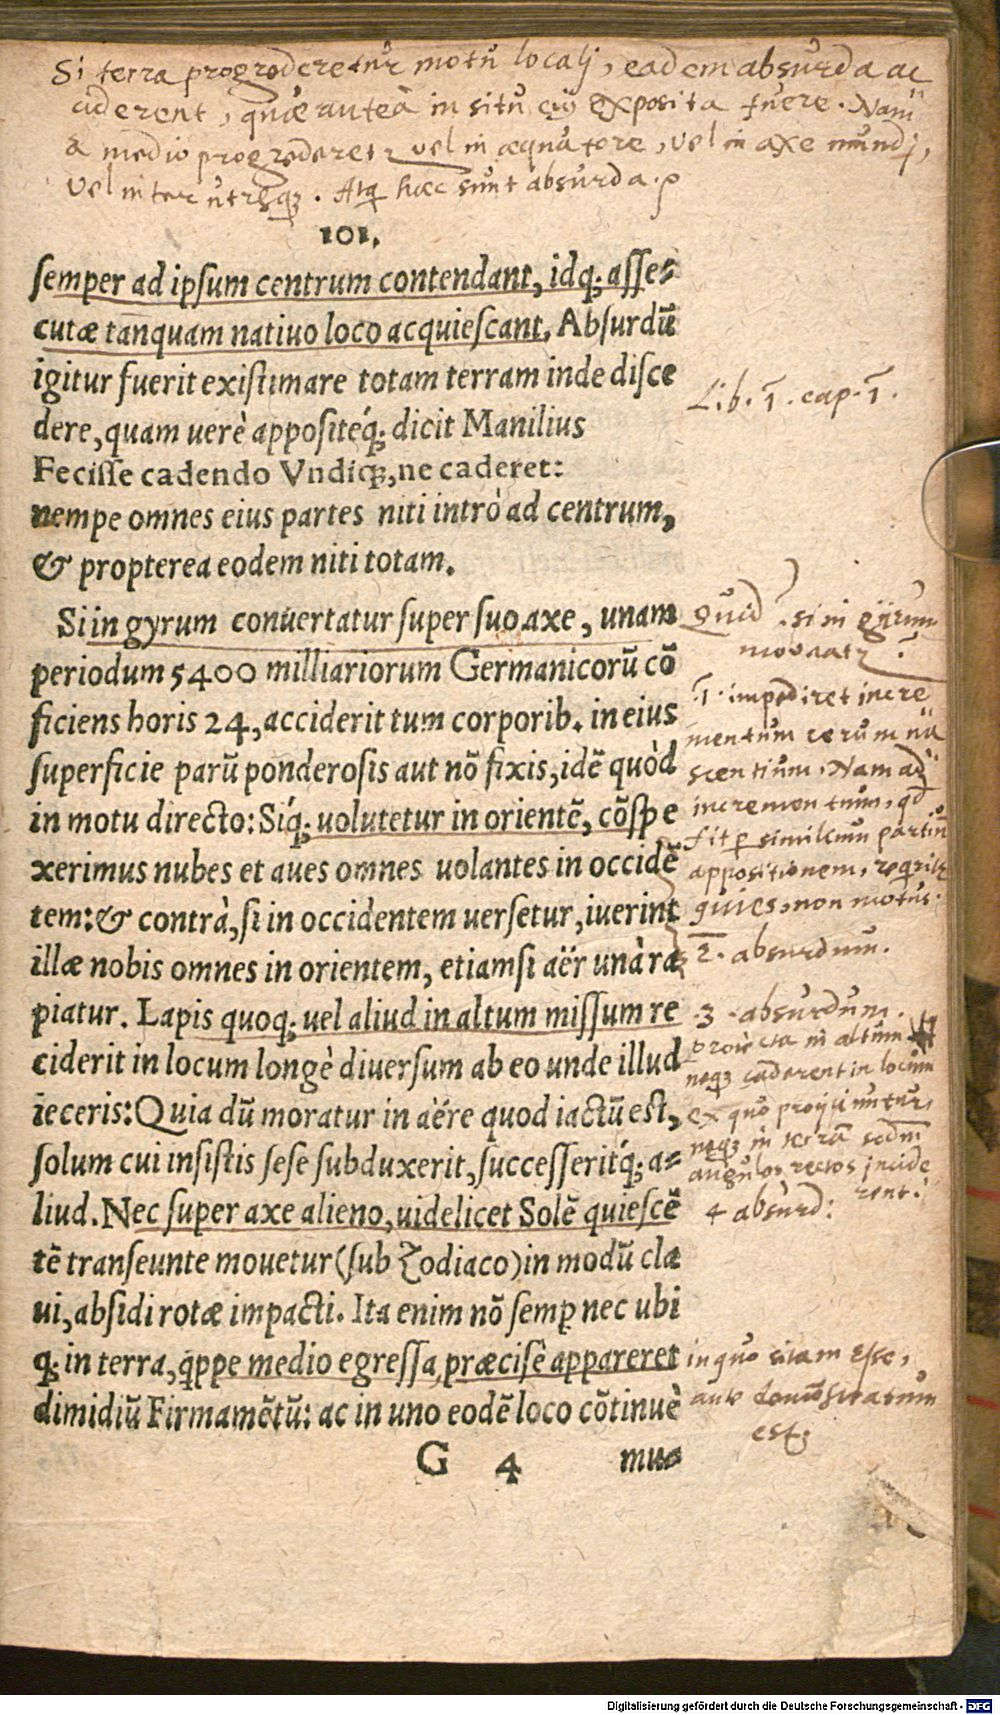 Si terra progrederetur motu locali, eadem absurda ac
ciderent, quæ anteà in situ eiꝰ exposita fuere. Nam
à medio progrederetr vel in æquatore, vel in axe mundi,
vel inter utrũqꝫ. Atqꝫ hæc sunt absurda.
101.
semper ad ipsum centrum contendant, idqꝫ asse-
cutæ tanquam natiuo loco acquiescant, Absurdũ
igitur fuerit existimare totam terram inde disce
dere, quam uerè appositéqꝫ dicit Manilius
Fecisse cadendo Vndiqꝫ, ne caderet:
nempe omnes eius partes niti intrò ad centrum,
& propterea eodem niti totam.
Si in gyrum conuertatur super suo axe, unam
periodum 5400 milliariorum Germanicorũ cõ
ficiens horis 24, acciderit tum corporib. in eius
superficie parũ ponderosis aut nõ fixis, idẽ quòd
in motu directo: Síqꝫ uolutetur in orientẽ, cõspe
xerimus nubes et aues omnes uolantes in occidẽ
tem: & contrà, si in occidentem uersetur, iuerint
illæ nobis omnes in orientem, etiamsi aër unà ra
piatur. Lapis quoqꝫ uel aliud in altum missum re
ciderit in locum longè diuersum ab eo unde illud
ieceris: Quia dũ moratur in aëre quod iactũ est,
solum cui insistis sese subduxerit, successeritqꝫ a-
liud. Nec super axe alieno, uidelicet Solẽ quiescẽ
tẽ transeunte mouetur (sub Zodiaco) in modũ cla
ui, absidi rotæ impacti. Ita enim nõ semꝑ nec ubi
qꝫ in terra, ꝗppe medio egressa, præcisè appareret
dimidiũ Firmamẽtũ: ac in uno eodẽ loco cõtinuè
G 4 mu-
Lib. 1. cap. 1.
Quid si in gyrum
moveatr?
1. impediret incre
mentum rerum na
scentium. Nam ad
incrementum, qd
fit ꝑ similium partiũ
appositionem, reqritr
quies, non motus.
2. absurdum.
3. absurdum.
proiecta in altum
neqꝫ caderent in locum
ex quo proijciuntur,
neqꝫ in terrã secdm
angulos rectos incide
rent.
4 absurd:
in quo sitam esse,
ante demonstratum
est
Digitalisierung gefördert durch die Deutsche Forschungsgemeinschaft - DFG